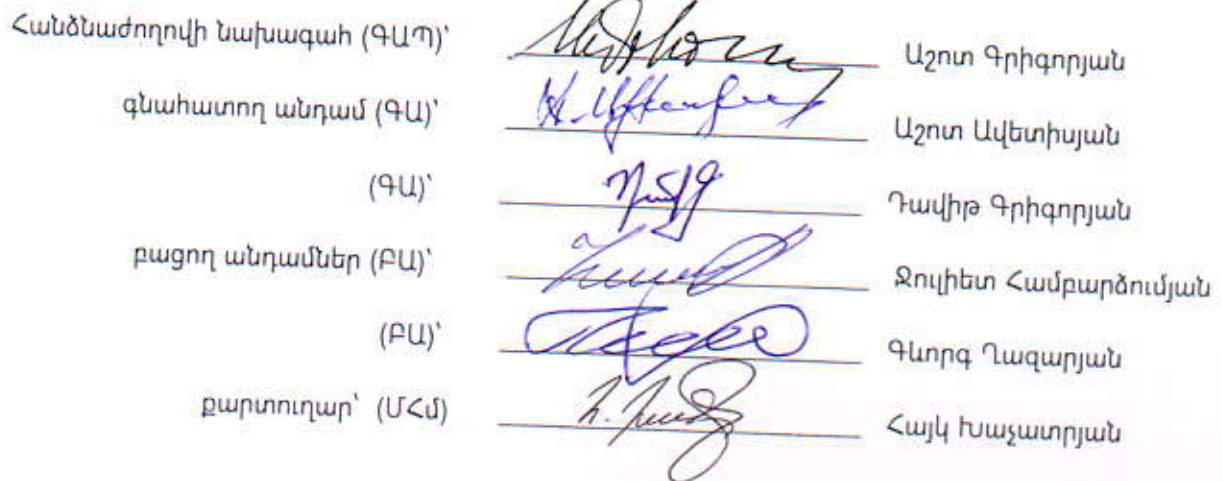 Հանձնաժողովի նախագահ (ԳԱՊ)՝ Աշոտ Գրիգորյան
գնահատող անդամ (ԳԱ)՝ Աշոտ Ավետիսյան
(ԳԱ)՝ Դավիթ Գրիգորյան
բացող անդամներ (ԲԱ)՝ Ջուլիետ Համբարձումյան
(ԲԱ)՝ Գևորգ Ղազարյան
քարտուղար՝ (ՄՀմ) Հայկ Խաչատրյան